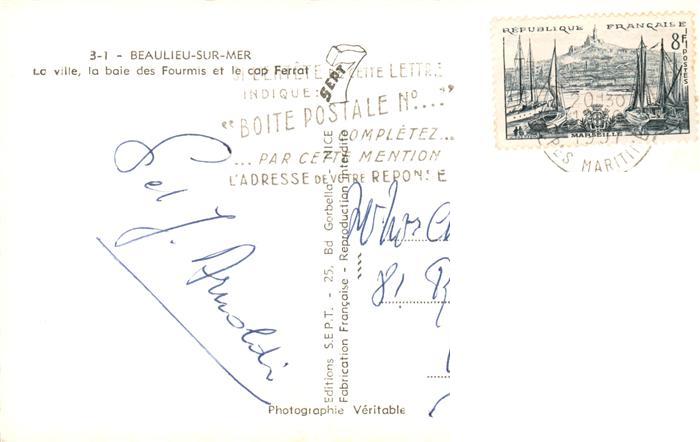 3-1 - BEAULIEU-SUR-MER
La ville, la baie des Fourmis et le cap Ferrat
SEPT 7
LETTRE
INDIQUE:
"BOITE POSTALE No...."
COMPLÉTEZ...
...PAR CETTE MENTION
L'ADRESSE DE VOTRE REPONSE
RÉPUBLIQUE FRANÇAISE
8F
POSTES
MARSEILLE
20-130
MARITI
J. Arnoldi
Editions S.E.P.T. - 25, Bd Gorbella - NICE
Fabrication Française - Reproduction Interdite
81
Photographie Véritable